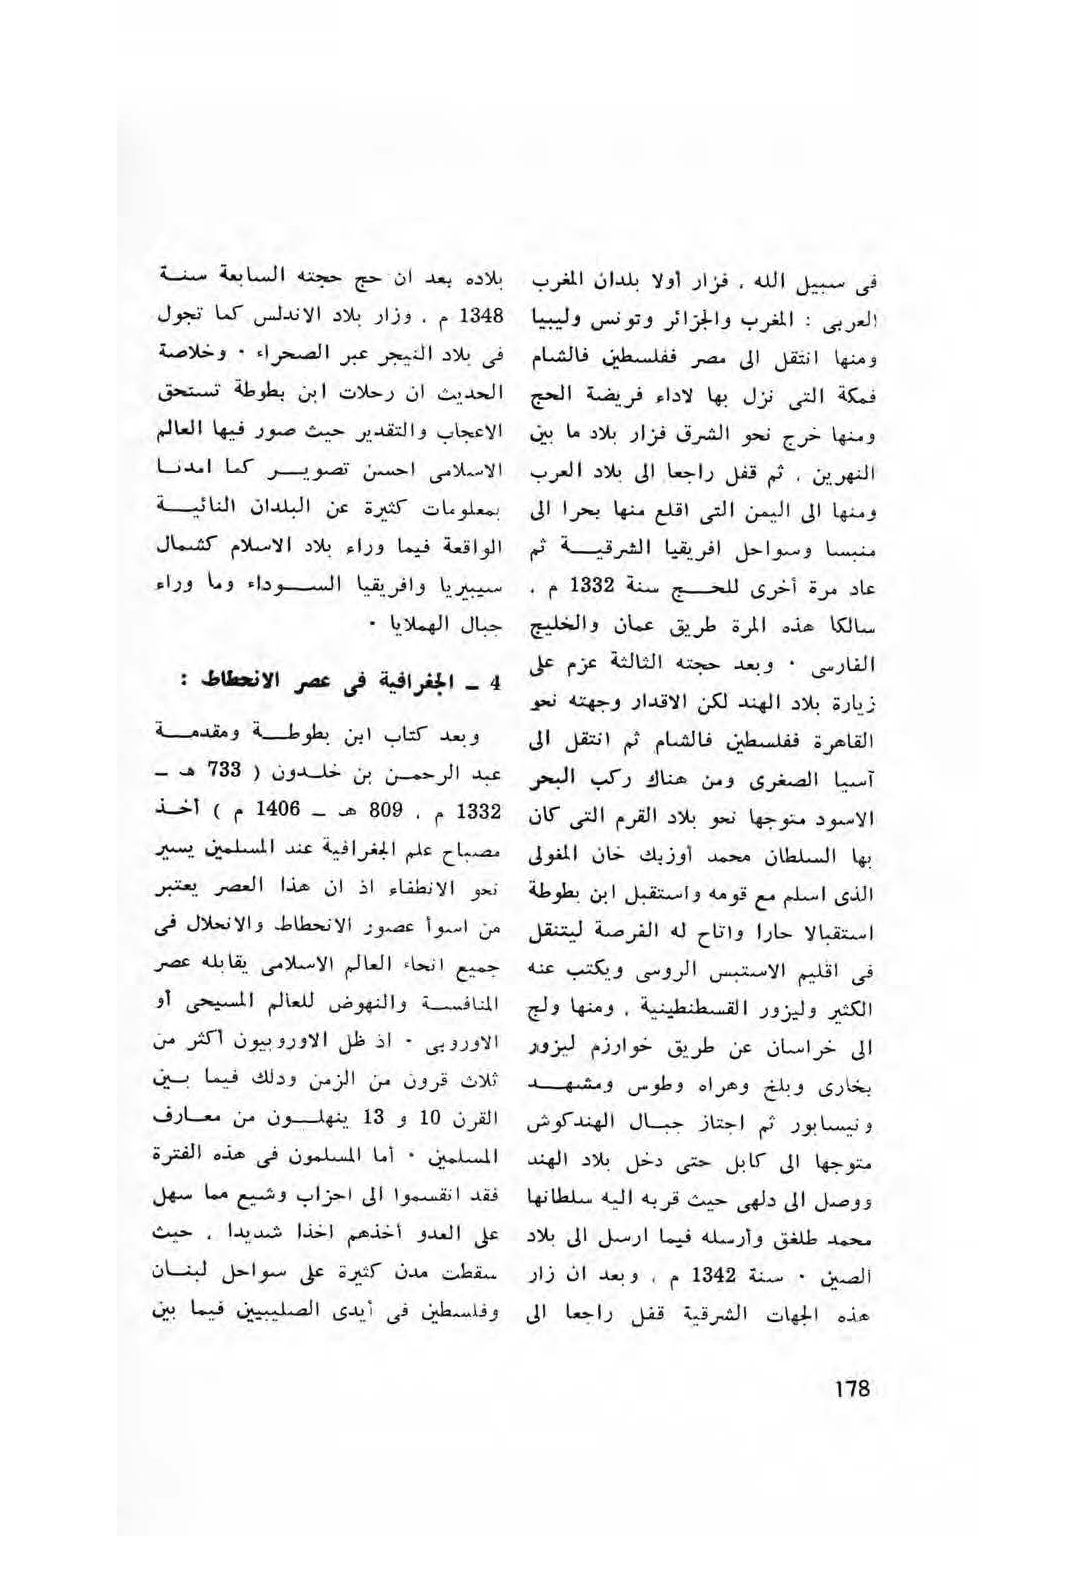 فى سبيل الله ، فزار أولا بلدان المغرب
العربى : المغرب والجزائر وتونس وليبيا
ومنها انتقل الى مصر ففلسطين فالشام
فمكة التى نزل بها لاداء فريضة الحج
ومنها خرج نحو الشرق فزار بلاد ما بين
النهرين ، ثم قفل راجعا الى بلاد العرب
ومنها الى اليمن التى اقلع منها بحرا الى
منبسا وسواحل افريقيا الشرقيـــة ثم
عاد مرة أخرى للحـــج سنة 1332 م ،
سالكا هذه المرة طريق عمان والخليج
الفارسى · وبعد حجته الثالثة عزم على
زيارة بلاد الهند لكن الاقدار وجهته نحو
القاهرة ففلسطين فالشام ثم انتقل الى
آسيا الصغرى ومن هناك ركب البحر
الاسود متوجها نحو بلاد القرم التى كان
بها السلطان محمد أوزبك خان المغولى
الذى اسلم مع قومه واستقبل ابن بطوطة
استقبالا حارا واتاح له الفرصة ليتنقل
فى اقليم الاستبس الروسى ويكتب عنه
الكثير وليزور القسطنطينية ، ومنها ولج
الى خراسان عن طريق خوارزم ليزور
بخارى وبلخ وهراه وطوس ومشهـــد
ونيسابور ثم اجتاز جبـال الهندكوش
متوجها الى كابل حتى دخل بلاد الهند
ووصل الى دلهى حيث قربه اليه سلطانها
محمد طلغق وأرسله فيما ارسل الى بلاد
الصين · سنة 1342 م ، وبعد ان زار
هذه الجهات الشرقية قفل راجعا الى
بلاده بعد ان حج حجته السابعة سنـة
1348 م ، وزار بلاد الاندلس كما تجول
فى بلاد النيجر عبر الصحراء · وخلاصة
الحديث ان رحلات ابن بطوطة تستحق
الاعجاب والتقدير حيث صور فيها العالم
الاسلامى احسن تصويـــر كما امدنـا
بمعلومات كثيرة عن البلدان النائيـــة
الواقعة فيما وراء بلاد الاسلام كشمال
سيبيريا وافريقيا الســـوداء وما وراء
جبال الهملايا ·
4 ـ الجغرافية فى عصر الانحطاط :
وبعد كتاب ابن بطوطـــة ومقدمـــة
عبد الرحمـن بن خلـدون ( 733 هـ ـ
1332 م ، 809 هـ ـ 1406 م ) أخـذ
مصباح علم الجغرافية عند المسلمين يسير
نحو الانطفاء اذ ان هذا العصر يعتبر
من اسوأ عصور الانحطاط والانحلال فى
جميع انحاء العالم الاسلامى يقابله عصر
المنافســـة والنهوض للعالم المسيحى أو
الاوروبى · اذ ظل الاوروبيون أكثر من
ثلاث قرون من الزمن وذلك فيما بـين
القرن 10 و 13 ينهلـــون من معـارف
المسلمين · أما المسلمون فى هذه الفترة
فقد انقسموا الى احزاب وشيع مما سهل
على العدو أخذهم اخذا شديدا ، حيث
سقطت مدن كثيرة على سواحل لبنـان
وفلسطين فى أيدى الصليبيين فيما بين
178